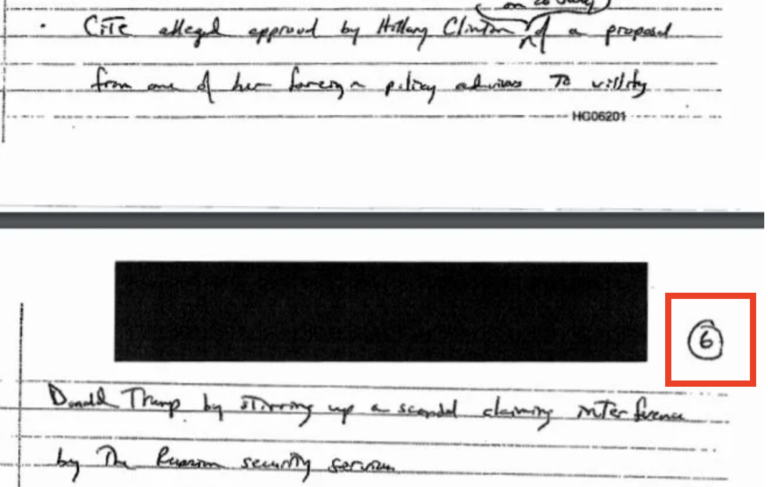 on 28 July
· CITE alleged approval by Hillary Clinton of a proposal
from one of her foreign policy advisors to villify
HC06201
6
Donald Trump by stirring up a scandal claiming interference
by the Russian security services